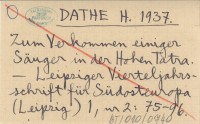 DATHE H. 1937.
Zum Vorkommen einiger
Säuger in der Hohen Tatra.
— Leipziger Vierteljahrs-
schrift für Südosteuropa
(Leipzig) 1, nr 2: 75-96.